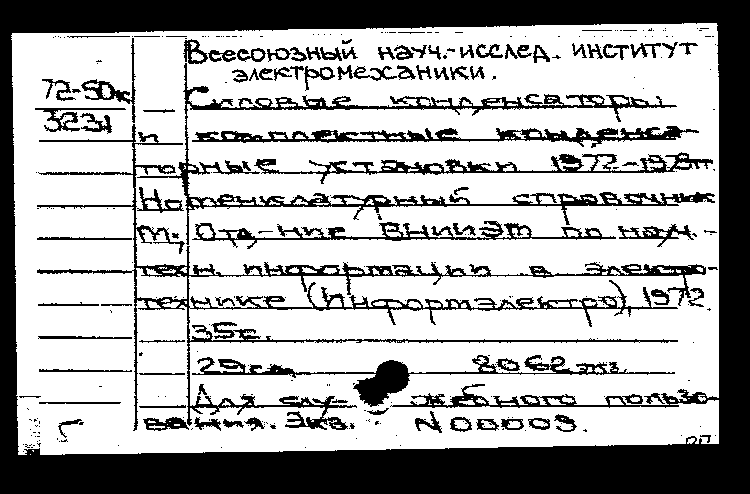 Всесоюзный науч.-исслед. институт
электромеханики.
72-50к
3231
Силовые конденсаторы
и комплектные конденса-
торные установки 1972-1978гг.
Номенклатурный справочник
М., Отд-ние ВНИИЭМ по науч.-
техн. информации в электро-
технике (Информэлектро), 1972.
35с.
29см. 8062 экз.
Для слу- жебного пользо-
вания. Экз. N 00009.